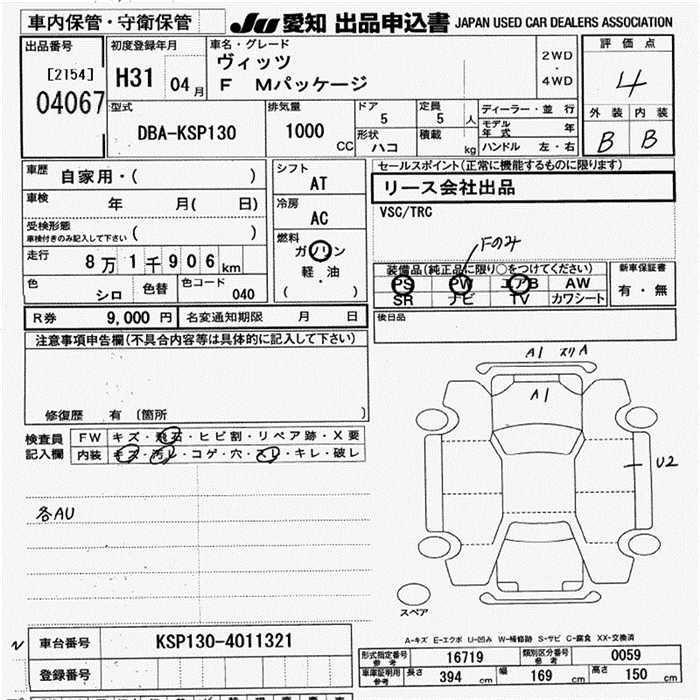 車内保管・守衛保管
JU 愛知 出品申込書 JAPAN USED CAR DEALERS ASSOCIATION
出品番号
[2154]
04067
初度登録年月
H31 04 月
車名・グレード
ヴィッツ
F Mパッケージ
2WD
・
4WD
評価点
4
外装 内装
B B
型式
DBA-KSP130
排気量
1000 CC
ドア
5
定員
5 人
形状
ハコ
積載
kg
ディーラー・並 行
モデル年式 年
ハンドル 左・右
車歴 自家用・( )
車検 年 月( 日)
受検形態
車検付きのみ記入して下さい ( )
走行 8万1千906km
色 シロ 色替 色コード 040
シフト
AT
冷房
AC
燃料
ガソリン
軽・油
( )
セールスポイント(正常に機能するものに限ります)
リース会社出品
VSC/TRC
Fのみ
装備品(純正品に限り○をつけてください)
PS PW エアB AW
SR ナビ TV カワシート
新車保証書
有・無
後日品
R券 9,000 円 名変通知期限 月 日
注意事項申告欄(不具合内容等は具体的に記入して下さい)
修復歴 有 (箇所 )
検査員記入欄
FW キズ・飛石・ヒビ割・リペア跡・X要
内装 キズ・汚レ・コゲ・穴・スレ・キレ・破レ
各AU
A1 スリA
A1
U2
スペア
A-キズ E-エクボ U-凹み W-補修跡 S-サビ C-腐食 XX-交換済
車台番号 KSP130-4011321
登録番号
形式指定番号 参考 16719 類別区分番号 参考 0059
車庫証明用参考 長さ 394 cm 幅 169 cm 高さ 150 cm